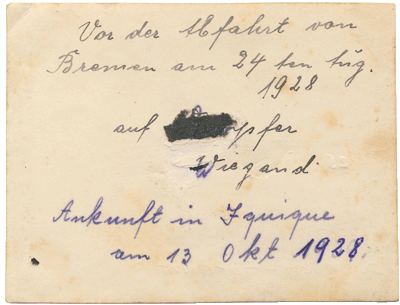 Vor der Abfahrt von
Bremen am 24 ten Aug.
1928
auf pfer
Wiegand
Ankunft in Iquique
am 13 Okt 1928.